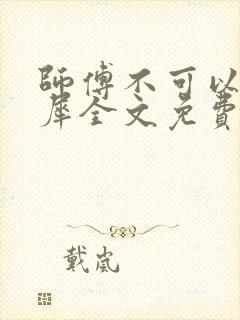 師傅不可以
犀全文免費
戴嵐